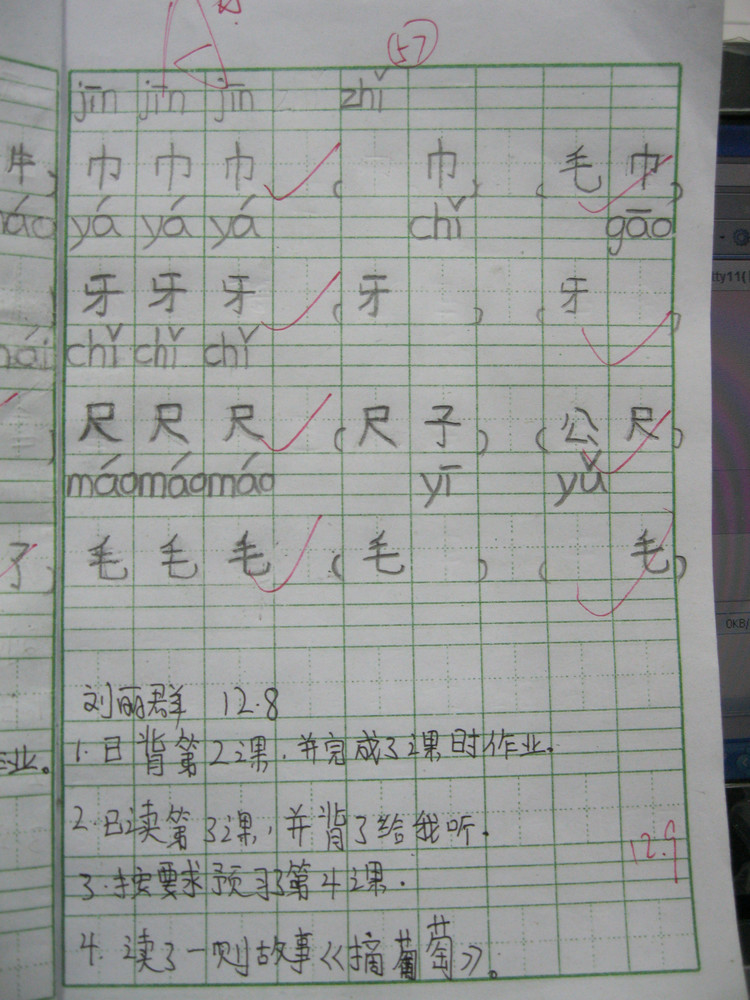 A
57
jīn jīn jīn zhǐ
牛) 巾 巾 巾 ( 巾) (毛 巾)
máo yá yá yá chǐ gāo
牙 牙 牙 (牙 ) (牙 )
nǎi chǐ chǐ chǐ
) 尺 尺 尺 (尺 子) (公 尺)
máo máo máo yī yǔ
了) 毛 毛 毛 (毛 ) ( 毛)
刘丽群 12.8
1.已背第2课,并完成了课时作业。
作业。
2.已读第3课,并背了给我听.
12.9
3.按要求预习了第4课.
4.读了一则故事《摘葡萄》。
tty11(
0KB/